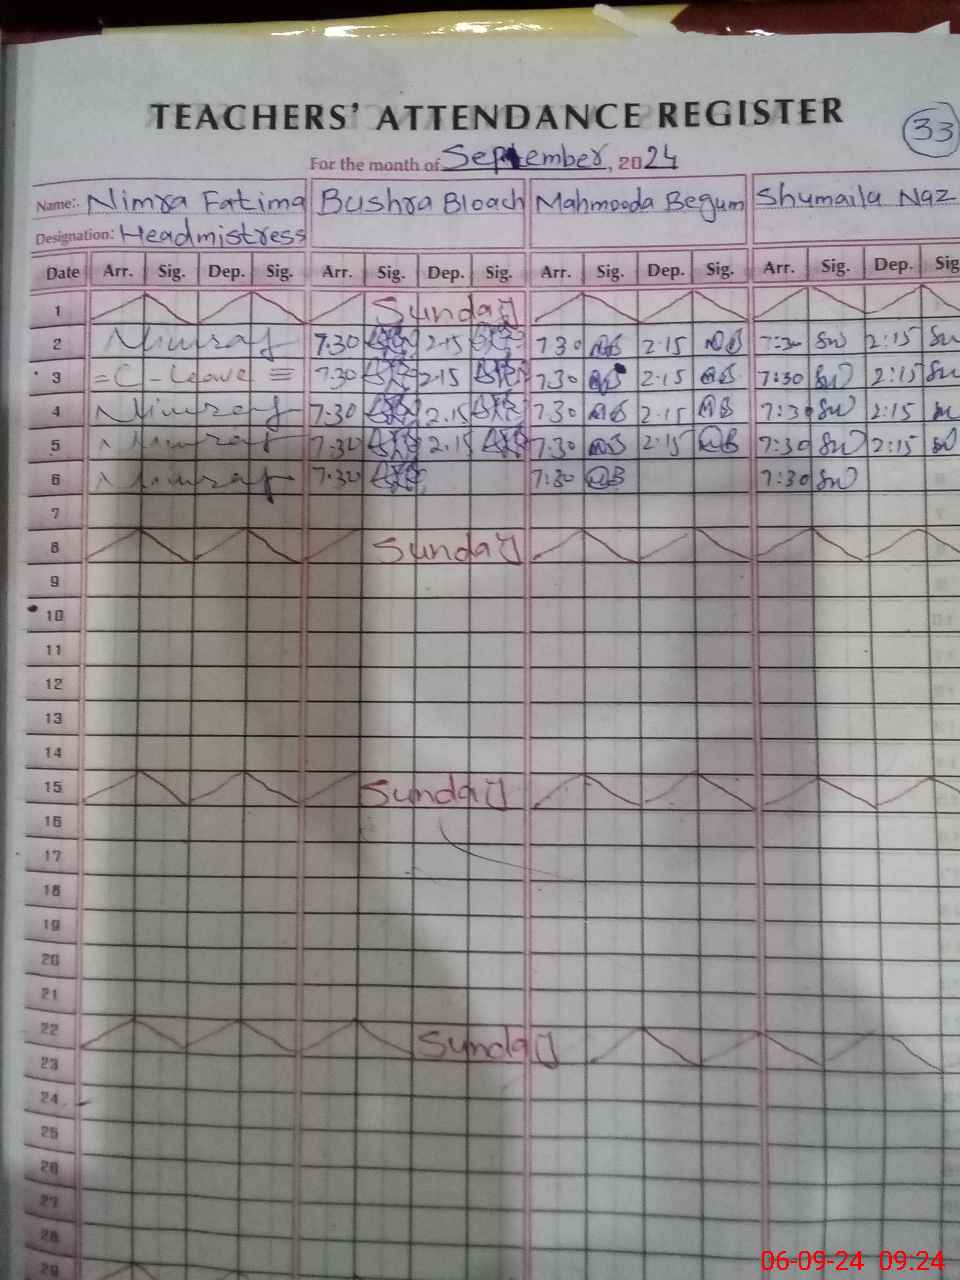 TEACHERS' ATTENDANCE REGISTER
33
For the month of September, 2024
Name:. Nimra Fatima Bushra Bloach Mahmooda Begum Shumaila Naz
Designation: Headmistress
Date Arr. Sig. Dep. Sig. Arr. Sig. Dep. Sig. Arr. Sig. Dep. Sig. Arr. Sig. Dep. Sig
1 Sunday
2 7.30 2.15 7.30 2.15 7:30 2:15
3 = C-Leave = 7.30 2.15 7.30 2.15 7:30 2:15
4 7.30 2.15 7.30 2.15 7:30 2:15
5 7.30 2.15 7.30 2:15 7:30 2:15
6 7.30 7:30 7:30
7
8 Sunday
9
10
11
12
13
14
15 Sunday
16
17
18
19
20
21
22 Sunday
23
24
25
26
27
28
29
06-09-24 09.24